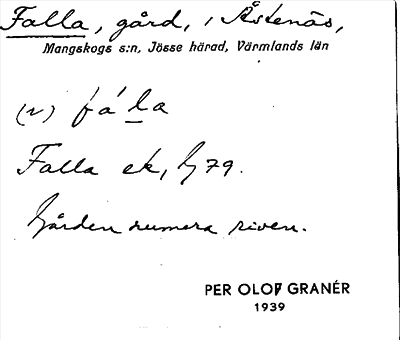 Falla, gård, i Åstenäs,
Mangskogs s:n, Jösse härad, Värmlands län
(v) fála
Falla ek, Lj 79.
Gården numera riven.
PER OLOF GRANÉR
1939